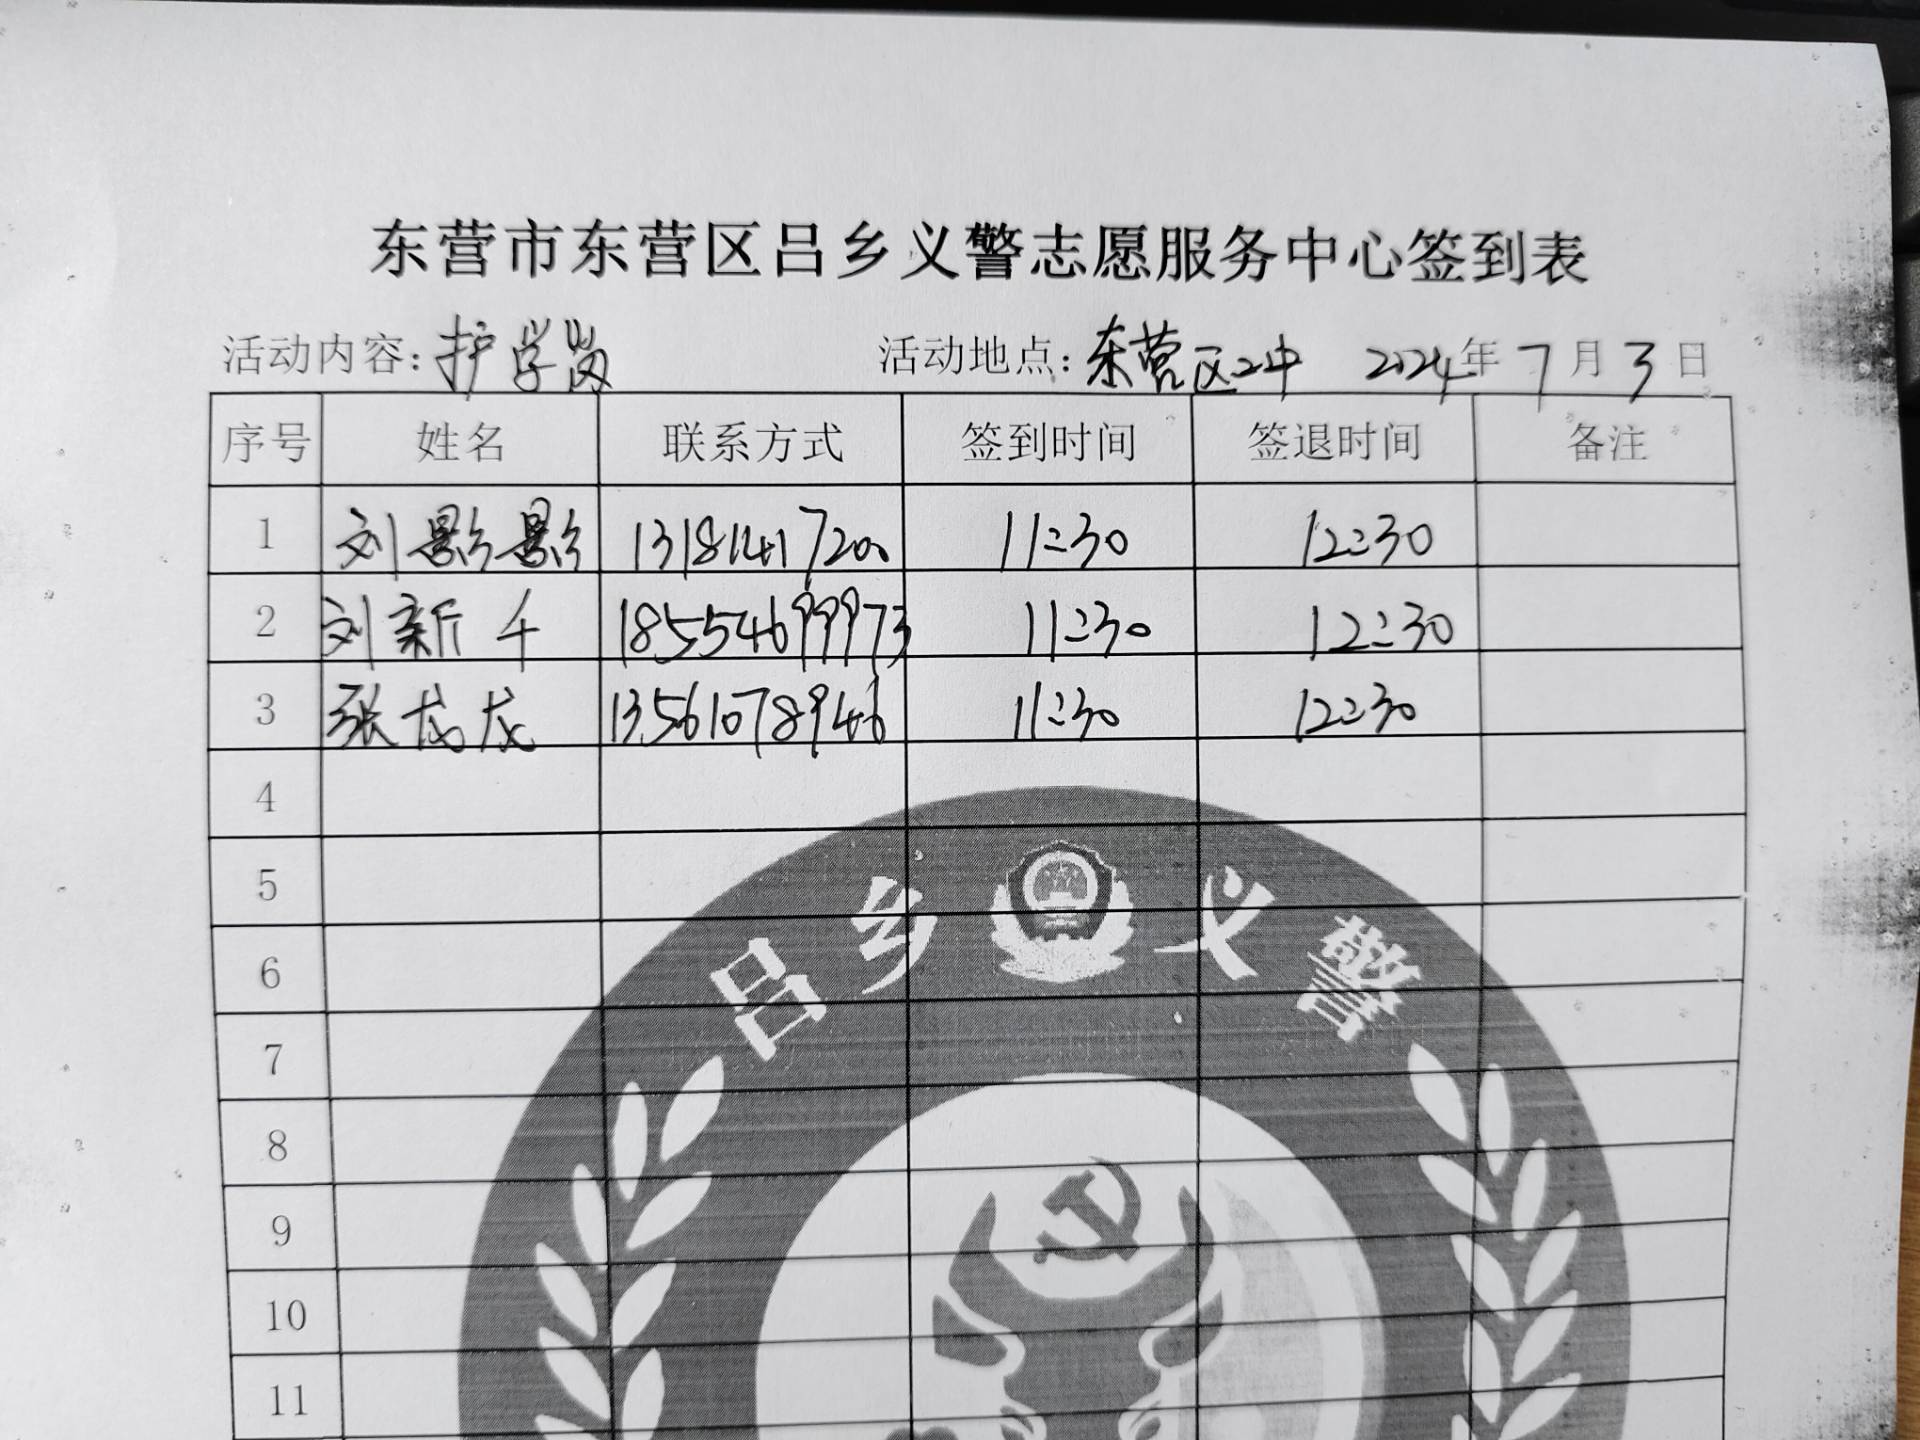 东营市东营区吕乡义警志愿服务中心签到表
活动内容：护学岗 活动地点：东营区2中 2024年7月3日
序号 姓名 联系方式 签到时间 签退时间 备注
1 刘影影 13181417200 11:30 12:30
2 刘新千 18554699973 11:30 12:30
3 张龙龙 13561078946 11:30 12:30
4
5
6
7
8
9
10
11
吕乡义警